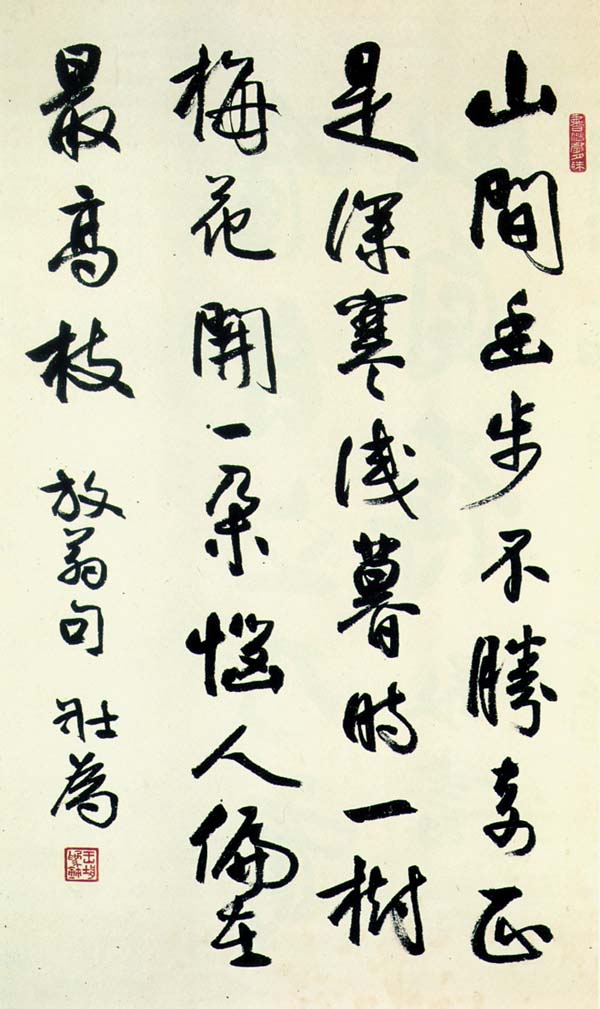 山間幽步不勝奇正
是深寒淺暮時一樹
梅花開一朵惱人偏在
最高枝 放翁句 壯為